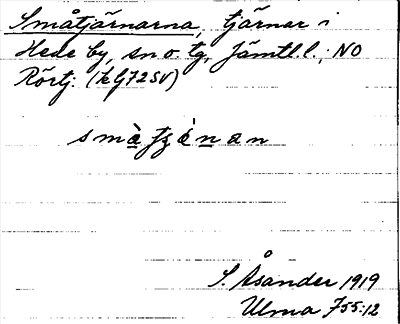 Småtjärnarna, tjärnar i
Hede by, sn o. tg, Jämtl.l.; NO
Rörtj. (kG72SV)
smàtʒánan
S. Åsander 1919
Ulma 755:12